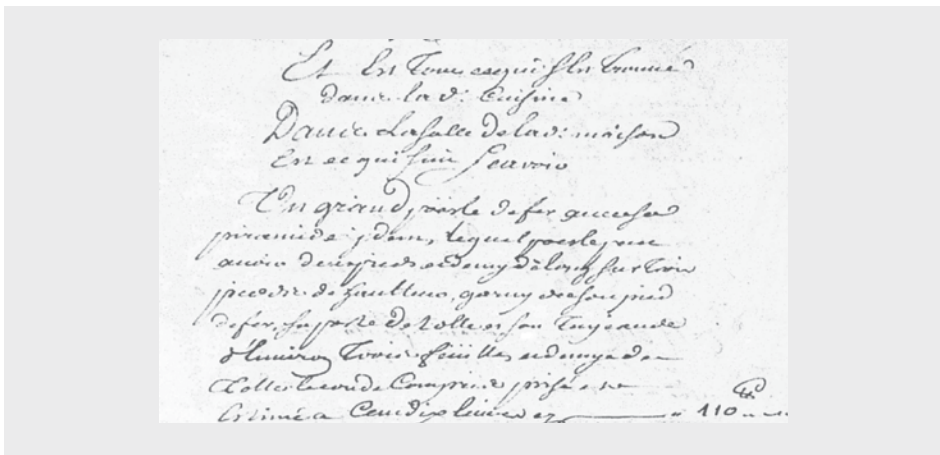 Et Est Tout ce qui s'Est trouvé
dans la d: Cuisine
Dans La Salle de lad: maison
Est ce qui suit Scavoir
Un grand poesle de fer avec sa
piramide jdem, lequel poesle peut
avoir deux pieds et demy de long sur trois
pieds de haulteur, garny de son pied
de fer, sa porte de tolle et son tuyeau de
d'Environ Trois feuilles et demye de
Tolle Le coude Compris prisé et
Estimé a Cent dix livres 110